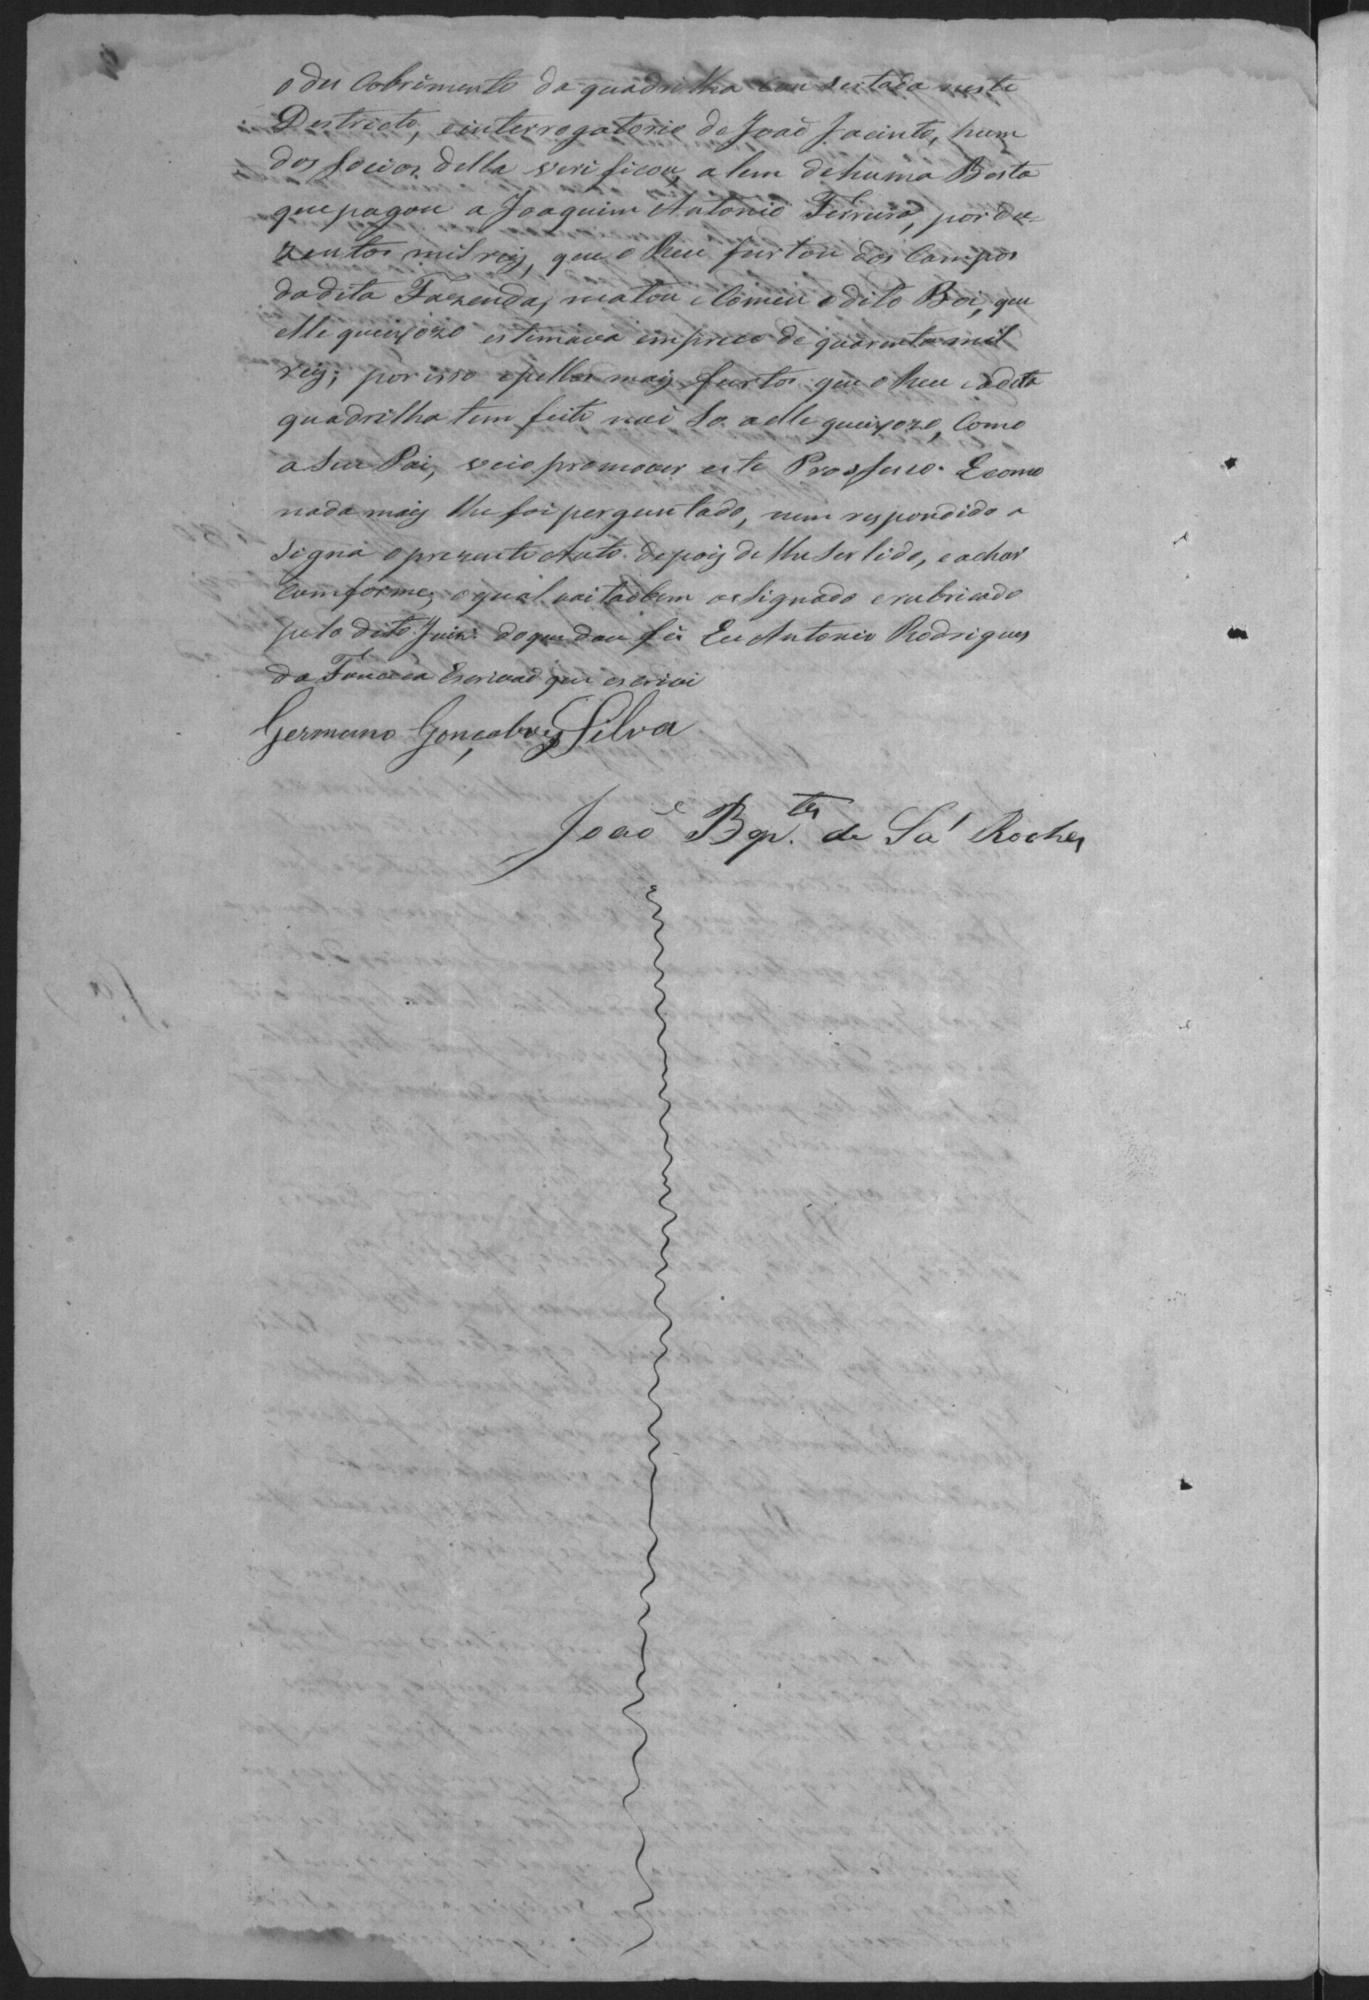 o descobrimento da quadrilha con sertada neste
Destricto, e interrogatorio de Joaõ Jacinto, hum
dos Socios della verificou, a lem de huma Besta
que pagou a Joaquim Antonio Ferreira, por du=
zentos mil reis, que o Reu furtou dos Campos
da dita Fazenda, matou e Comeu o dito Boi, que
elle queixozo estimava em preco de quarenta mil
reis; por isso e pellos mais furtos que o Reu e a dita
quadrilha tem feito naõ So a elle queixozo, Como
a Seu Pai, veio promover este Prossesso. E como
nada mais lhe foi perguntado, nem respondido a
signa o prezente Auto depois de lhe ser lido, e achar
comforme, o qual vai taobem assignado e rubricado
pelo dito Juiz do que dou fé Eu Antonio Rodrigues
da Fonceca Escrivaõ que escrevi
Germano Gonçalves Silva
Joaõ Bap.ta de Sá Rocha